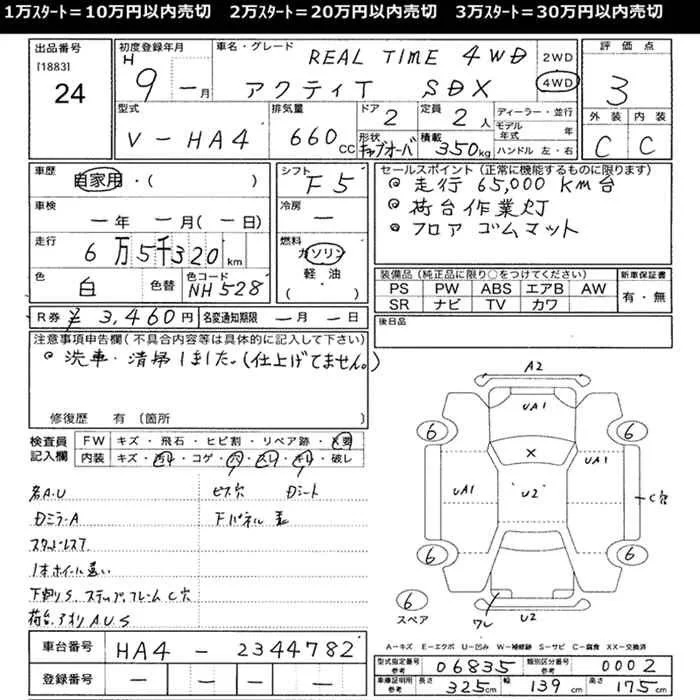 1万スタート＝10万円以内売切　2万スタート＝20万円以内売切　3万スタート＝30万円以内売切
出品番号
[1883]
24
初度登録年月
H 9 ー月
車名・グレード
REAL TIME 4WD
アクティT SDX
2WD
4WD
評価点
3
外装 内装
C C
型式
V-HA4
排気量
660cc
ドア
2
定員
2人
形状
キャブオーバ
積載
350kg
ディーラー・並行
モデル年式 年
ハンドル 左・右
車歴
自家用・( )
車検
ー年 ー月(ー日)
走行
6万5千320km
色
白
色替
色コード
NH528
シフト
F5
冷房
ー
燃料
ガソリン
軽油
( ・ )
R券 ¥3,460円
名変通知期限 ー月ー日
セールスポイント (正常に機能するものに限ります)
◎走行 65,000km台
◎荷台作業灯
◎フロア ゴムマット
装備品 (純正品に限り○をつけてください)
PS PW ABS エアB AW
SR ナビ TV カワ
新車保証書
有・無
後日品
注意事項申告欄 (不具合内容等は具体的に記入して下さい)
◎洗車・清掃しました。(仕上げてません。)
修復歴 有 (箇所 )
検査員記入欄
FW キズ・飛石・ヒビ割・リペア跡・X要
内装 キズ・汚れ・コゲ・穴・スレ・キレ・破レ
各A.U
Dミラー A
スタッドレスT
1本ホイール違い
下削りS. ステップ、フレームC穴
荷台.アオリ A.U.S
ビス穴
Dシート
A2
UA1
6
6
X
UA1
UA1
U2
C穴
6
6
6
スペア
ワレ
U2
A－キズ E－エクボ U－凹み W－補修跡 S－サビ C－腐食 XX－交換済
車台番号
HA4-2344782
登録番号
ー ー ー ー
型式指定番号 参考
06835
類別区分番号 参考
0002
車庫証明用 参考
長さ 325cm
幅 139cm
高さ 175cm